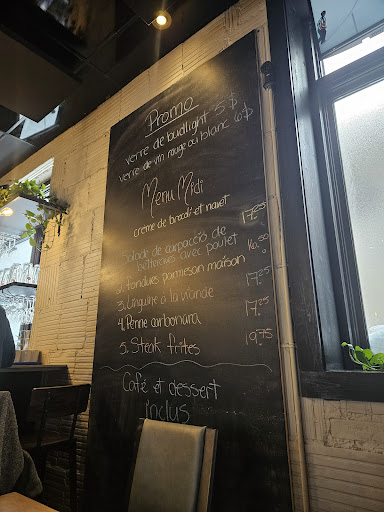 Promo
verre de budlight 5$
verre de vin rouge ou blanc 6$
Menu Midi
crème de brocoli et navet
Salade de carpaccio de 17.25
betteraves avec poulet 16.50
2. fondues parmesan maison
3. Linguine à la viande 17.25
4. Penne carbonara 17.25
5. Steak frites 19.75
Café et dessert
inclus